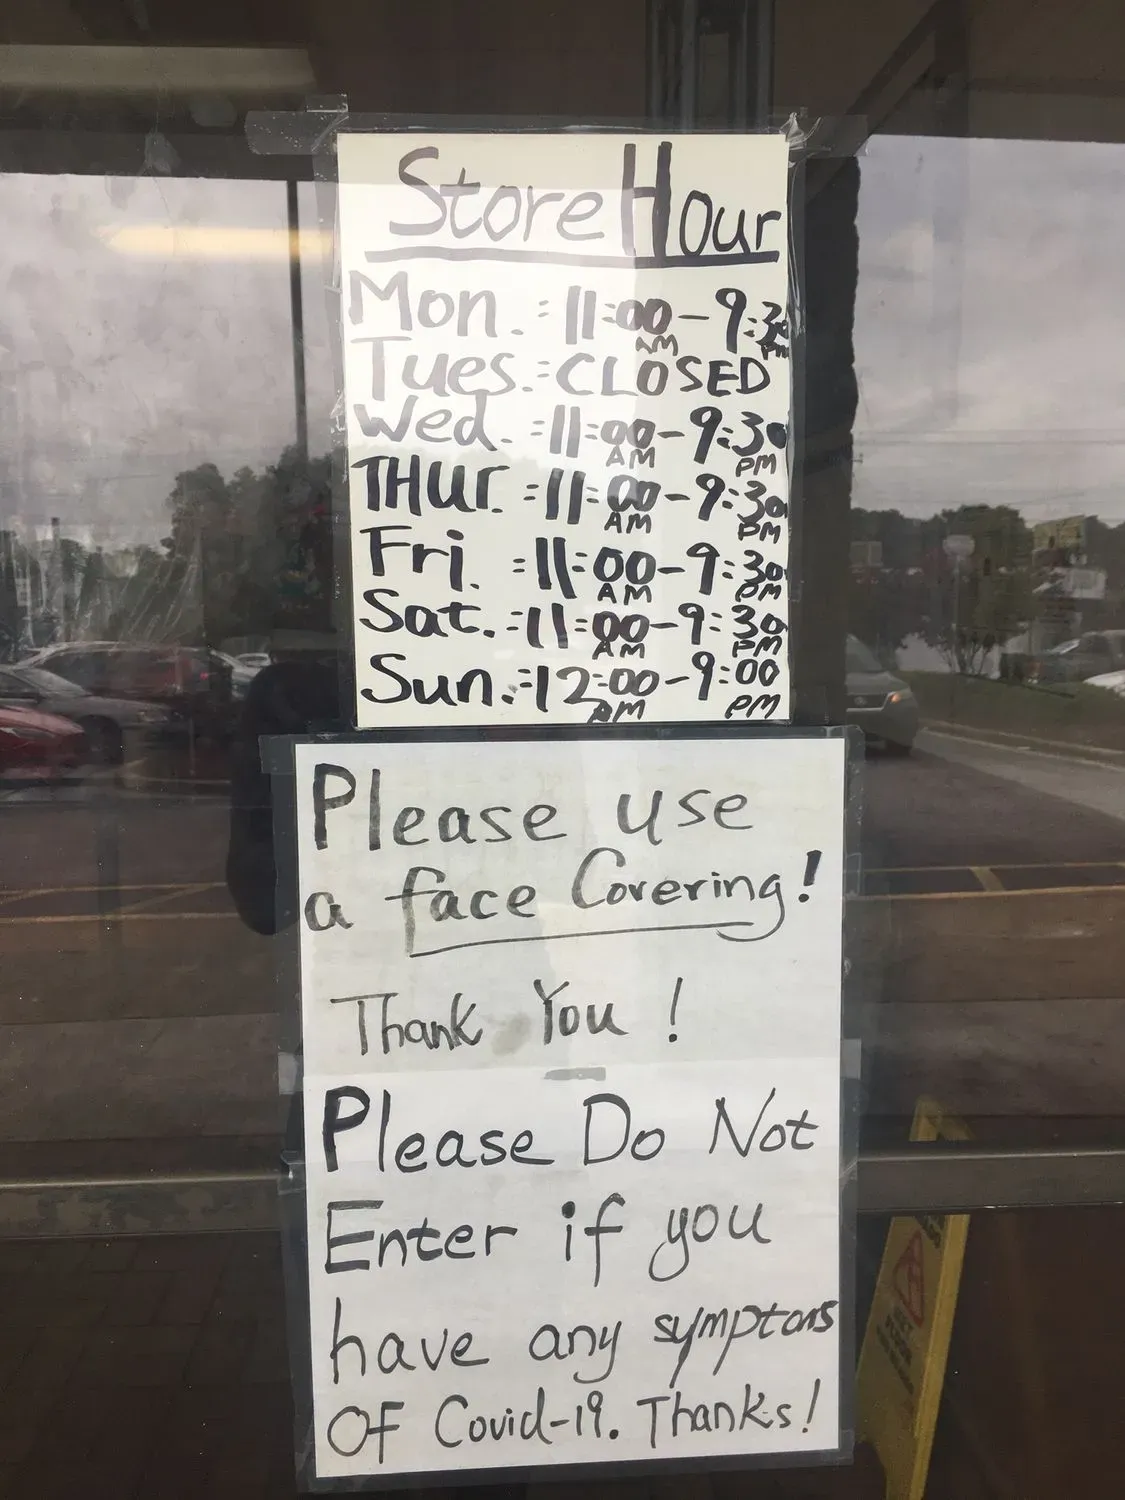 Store Hour
Mon. : 11:00 - 9:30
AM PM
Tues. : CLOSED
Wed. : 11:00 - 9:30
AM PM
THUR. : 11:00 - 9:30
AM PM
Fri. : 11:00 - 9:30
AM PM
Sat. : 11:00 - 9:30
AM PM
Sun. : 12:00 - 9:00
PM PM
Please use
a face Covering!
Thank You !
Please Do Not
Enter if you
have any symptoms
OF Covid-19. Thanks!